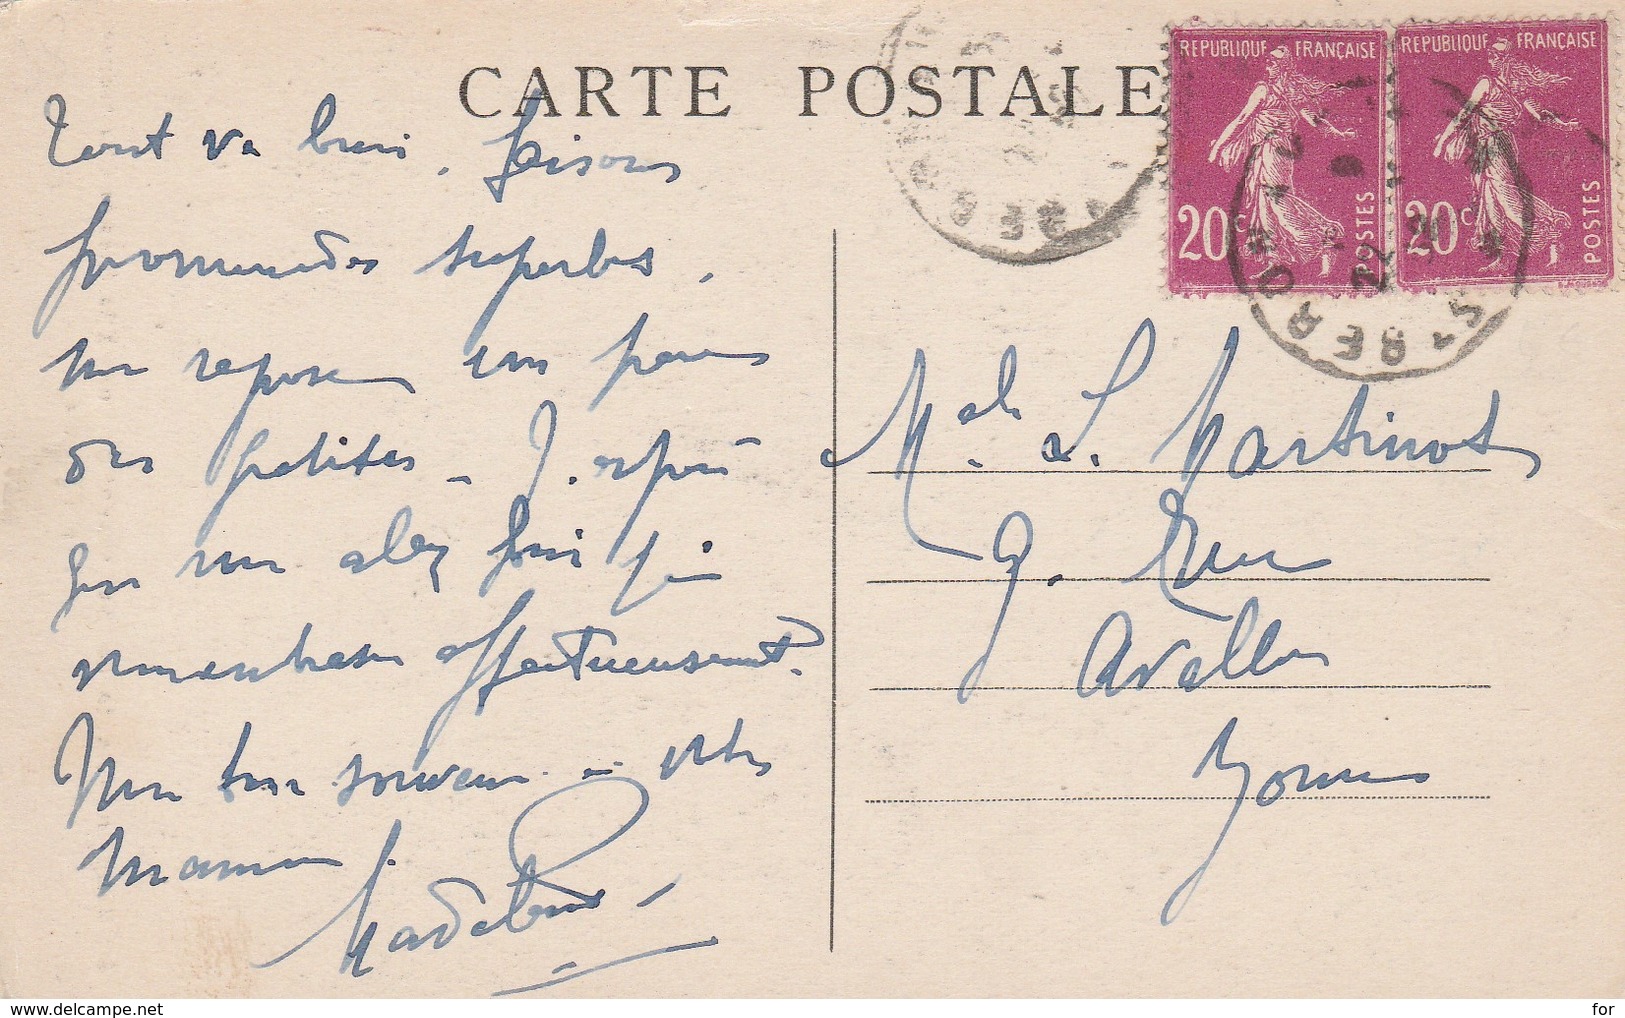 CARTE POSTALE
RÉPUBLIQUE FRANÇAISE
20c
POSTES
RÉPUBLIQUE FRANÇAISE
20c
POSTES
Tout va bien. Faisons
promenades superbes.
me repose un peu
des petites _ J. espère
que vous allez
vous embrasse affectueusement.
Mon bon souvenir à votre
maman.
Madeleine
L. Martinot
9. Rue
Avallon
Yonne
www.delcampe.net
for